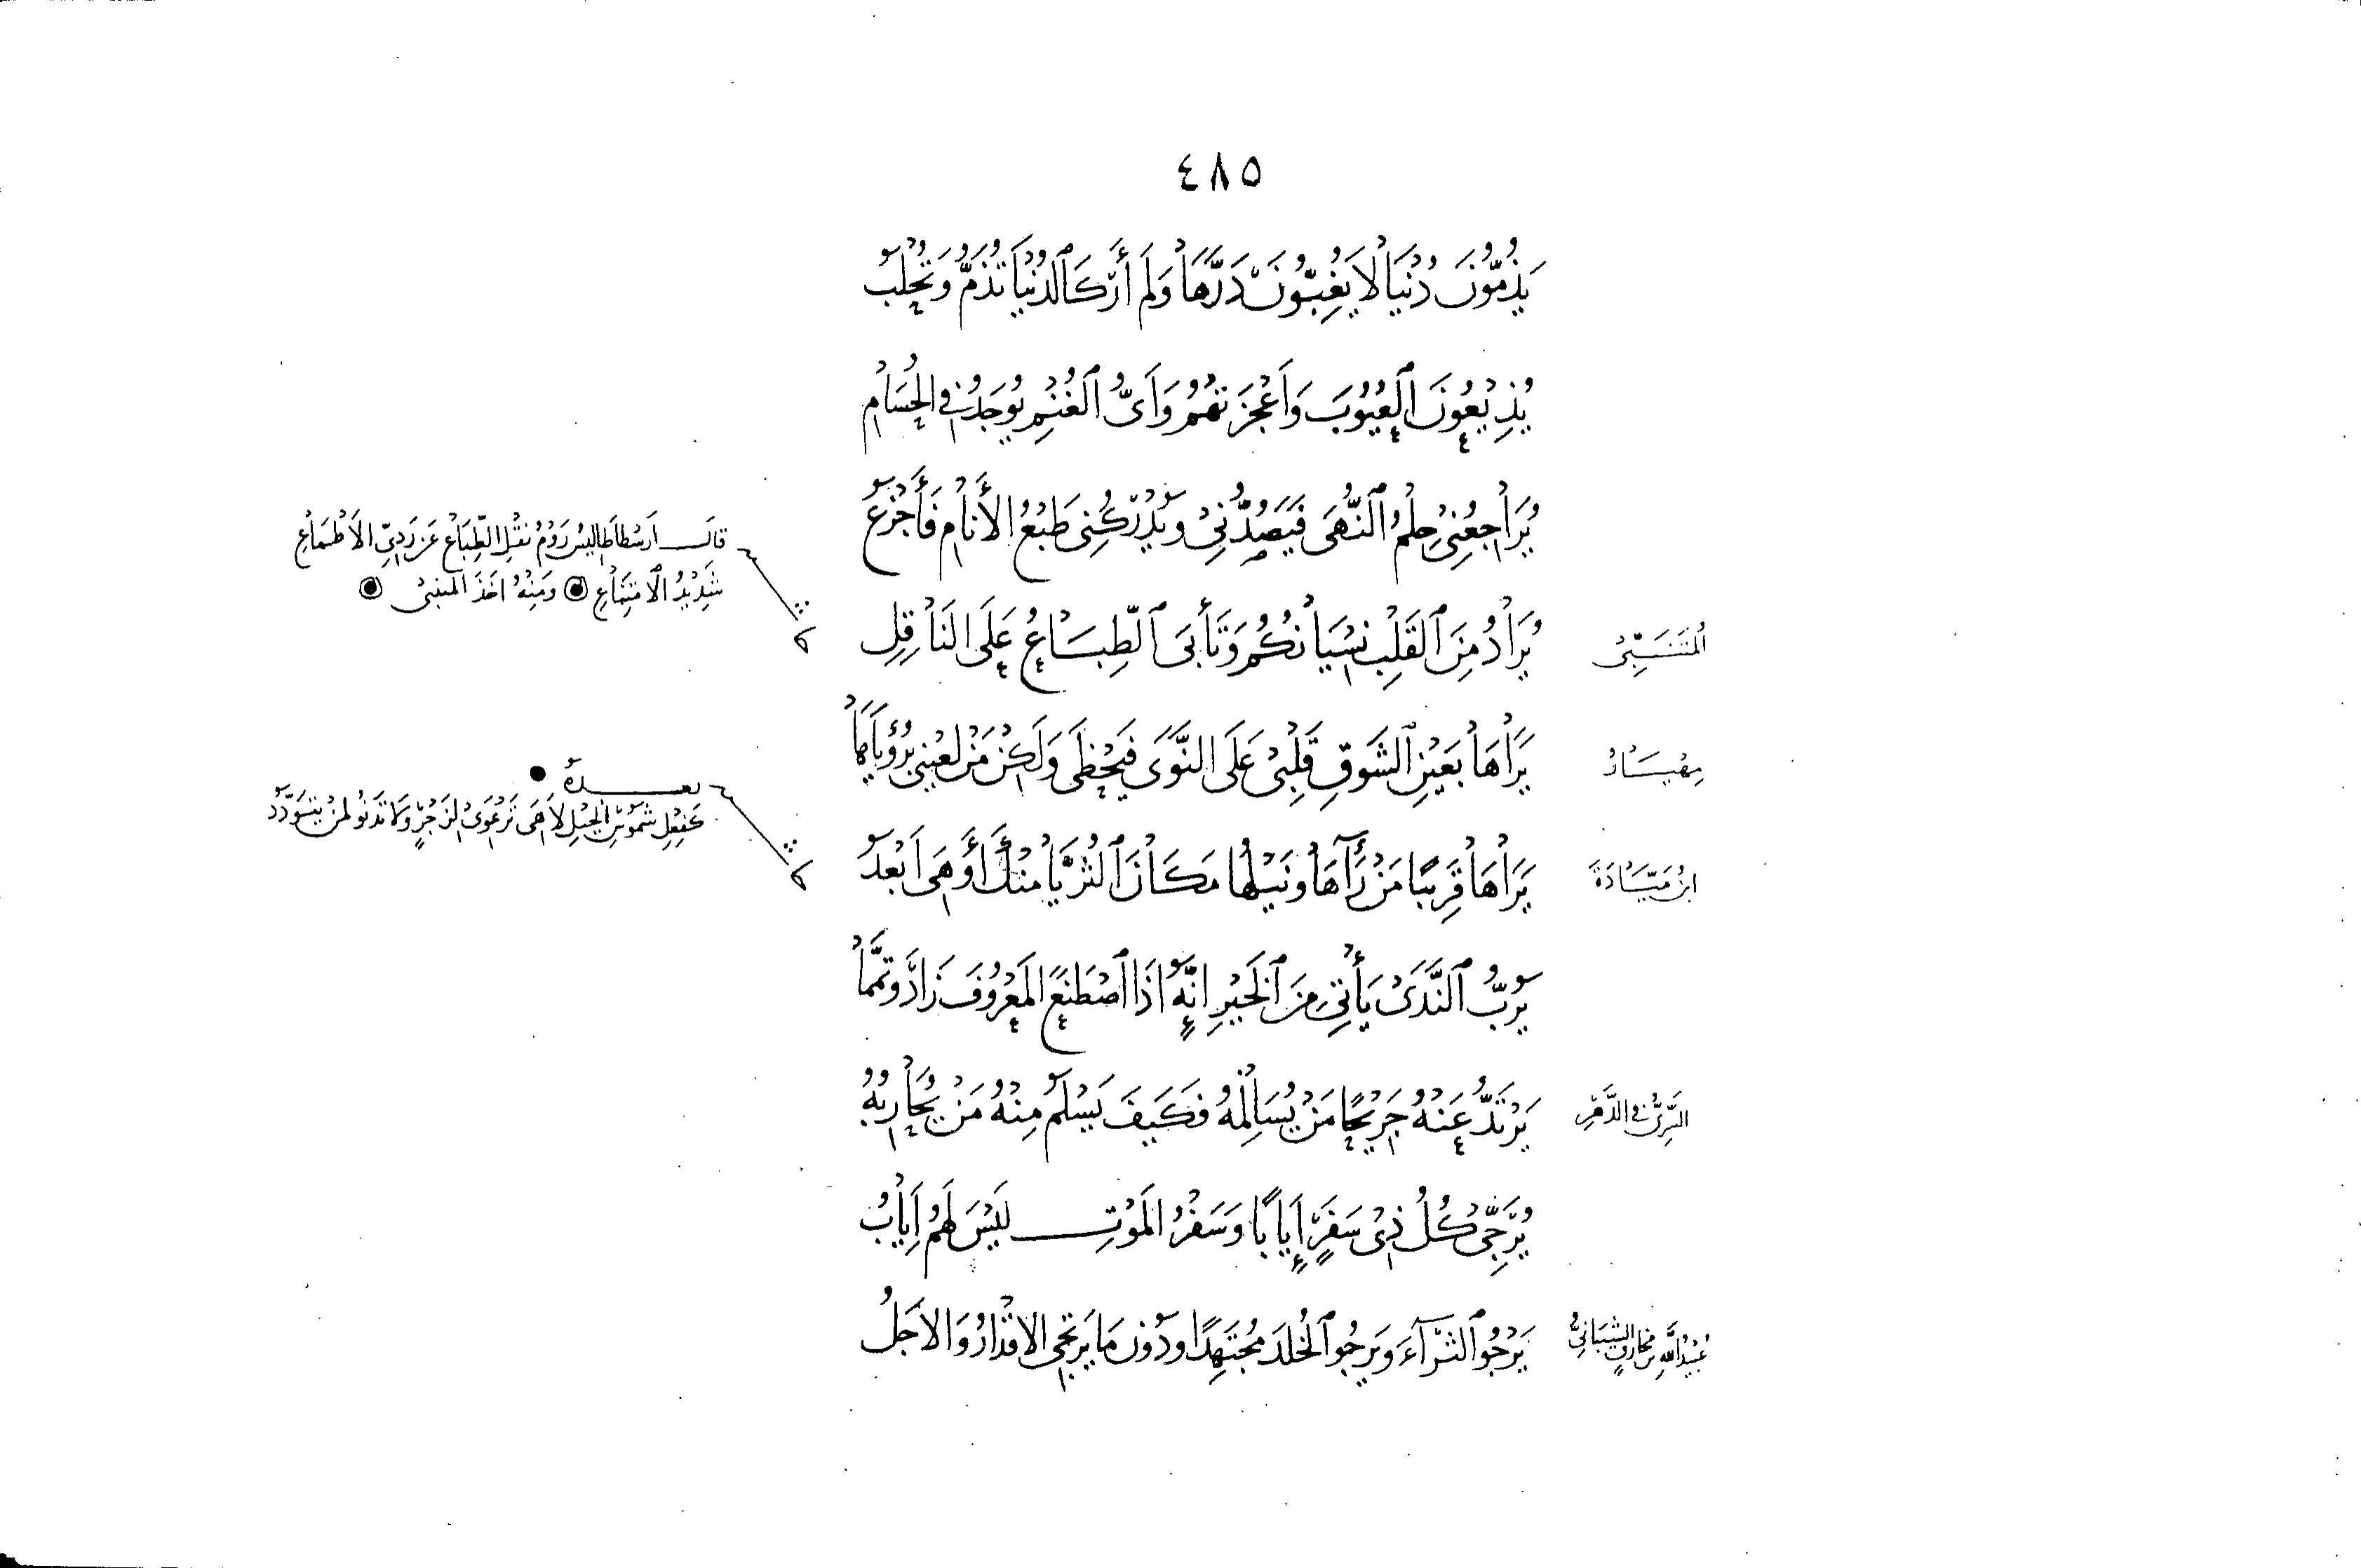 ٤٨٥
يَذُمُّونَ دُنْيَا لَا يُغِبُّونَ دَرَّهَا وَلَمْ أَرَ كَالدُّنْيَا تُذَمُّ وَتُحْلَبُ
يُذِيْعُونَ الْعُيُوْبَ وَأَعْجَزَتْهُمُ وَأَىُّ الْغُنْمِ يُوجَدُ فِي الْحُسَامِ
يُرَاجِعُنِيْ حِلْمُ النُّهَى فَيَصُدُّنِيْ وَيُدْرِكُنِى طَبْعُ الأَنَامِ فَأَجْزَعُ
قَالَ ارَسْطَاطَالِيسُ رَوْمُ نَقْلِ الطِّبَاعِ عَنْ رَدِيِّ الاَطْمَاعِ
شَدِيْدُ الاِمْتِنَاعِ وَمِنْهُ اخَذَ المتنبيْ
المُتَنَبِّىْ
يُرَادُ مِنَ الْقَلْبِ نِسْيَانُكُمْ وَتَأْبَى الطِّبَاعُ عَلَى النَّاقِلِ
مِهْيَارُ
يَرَاهَا بِعَيْنِ الشَوقِ قَلْبِيْ عَلَى النَّوَى فَيَحْظَى وَلَكِنْ مَنْ لعَيْنِي برُؤْيَاهَا
ابنُ مَيَّادَةَ
يَرَاهَا قَرِيْبًا مَنْ رَآهَا وَنَيْلُهَا مَكَانَ الثُّرَيَّا مِنْكَ أَوْ هِيَ اَبْعَدُ
بعدهُ
كَفِعْلِ شَمُوْسِ الخَيْلِ لاَ هِيَ تَرْعَوِىْ لزَجْرٍ وَلا تَدْنُو لمَنْ يتَوَدَّدُ
يَرُبُّ النَّدَىْ يَأْتِيْ مِنَ الْخَيْرِ انَّهُ اذَا اصْطَنَعَ المَعْرُوْفَ زَادَ وَتمَّمَا
السَّرِىُّ في الدَّهْرِ
يَرْتَدُّ عَنْهُ جَرِيْحًا مَنْ يُسَالِمُهُ فَكَيْفَ يَسْلَمُ مِنْهُ مَنْ يُحَارِبُهُ
يُرَجِّى كُلُّ ذِيْ سَفَرٍ إِيَابًا وَسَفْرُ المَوْتِ لَيْسَ لَهُمْ اِيَابُ
عُبَيْدُ اللَّهِ بن مخارقٍ الشَّيْبَانِيُّ
يَرْجُو الثَّرَآءَ وَيَرجُو الْخُلْدَ مُجْتَهِدًا ودُونَ مَا يَرْتجي الاقْدَارُ وَالأجَلُ